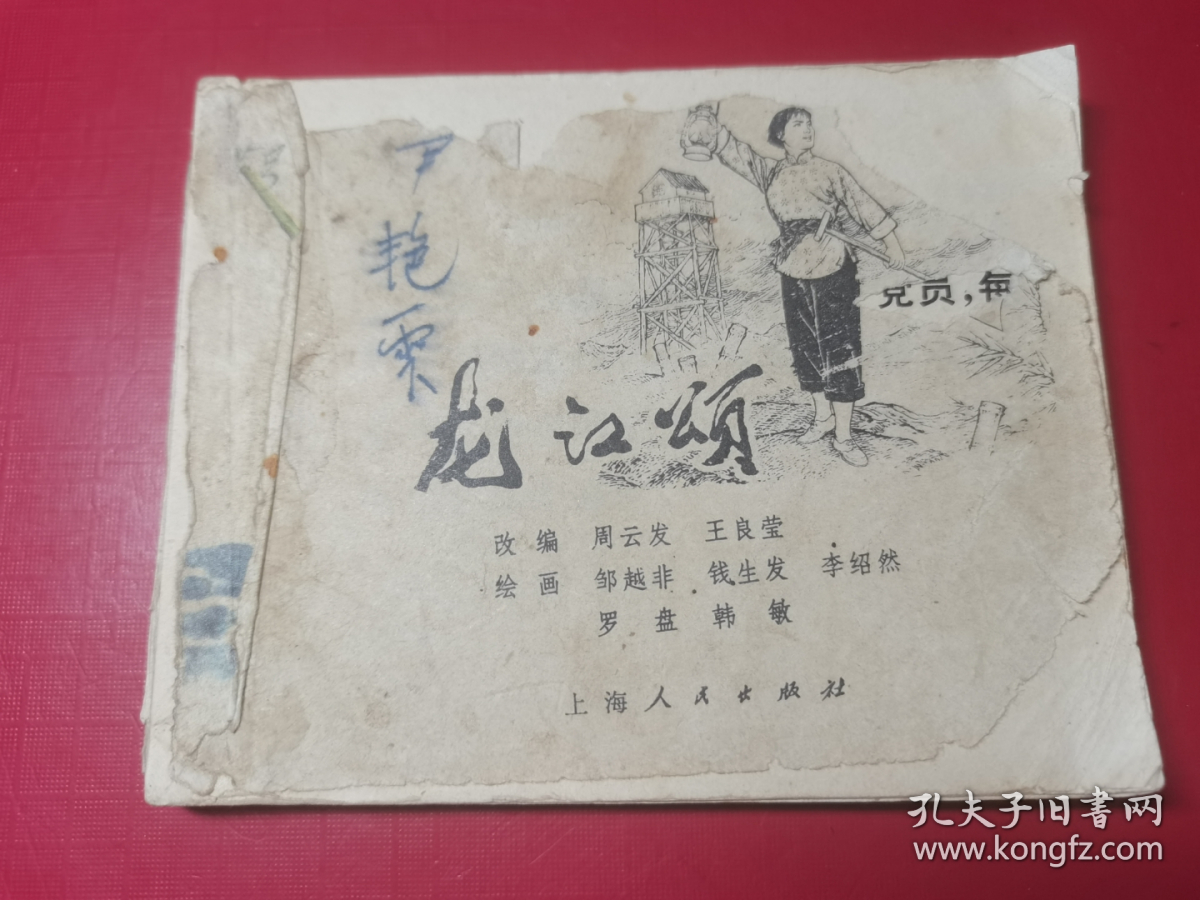 艳
党员，每
龙江颂
改编 周云发 王良莹
绘画 邹越非 钱生发 李绍然
罗盘 韩敏
上海人民出版社
孔夫子旧书网
www.kongfz.com